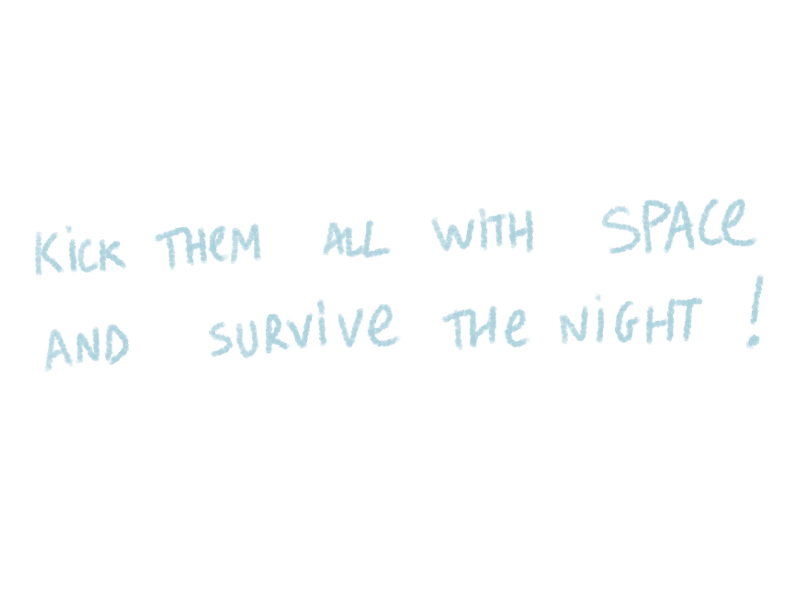 KiCK THeM ALL WiTH SPACe
AND SURViVe THe NiGHT !